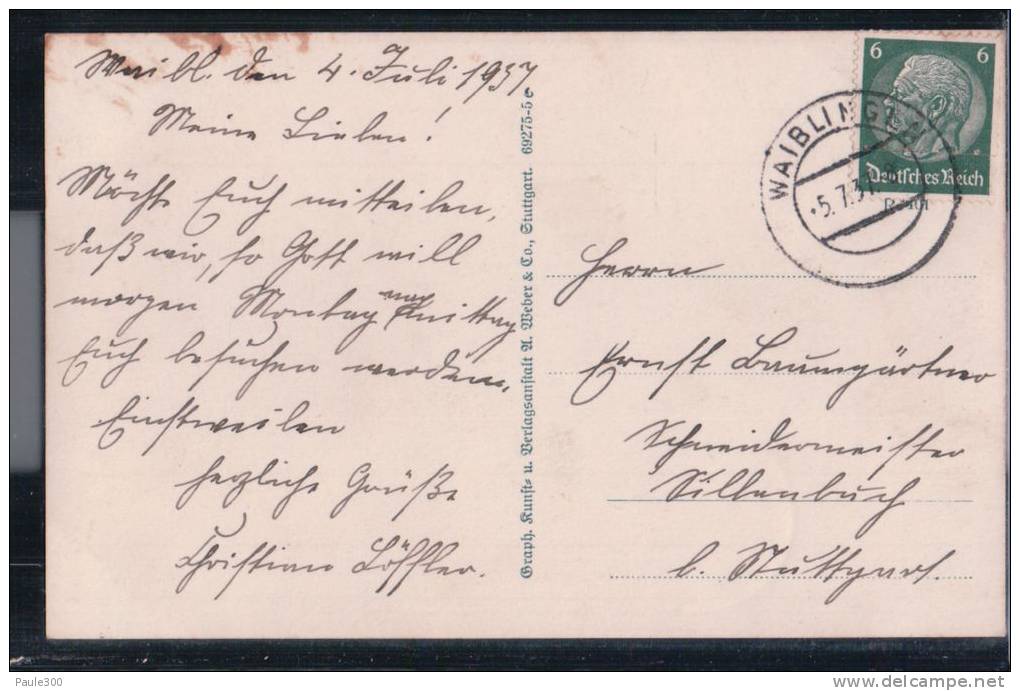 Waibl. den 4. Juli 1937
Meine Lieben!
Möchte Euch mitteilen,
daß wir, so Gott will
morgen Montag nachmittag
Euch besuchen werden.
Einstweilen
herzliche Grüße
Christian Löffler.
Graph. Kunst- u. Verlagsanstalt A. Weber & Co., Stuttgart. 69275-5
6 6
Deutsches Reich
WAIBLINGEN
5.7.37
Herrn
Ernst Baumgärtner
Schneidermeister
Sillenbuch
b. Stuttgart.
Paule300
www.delcampe.net